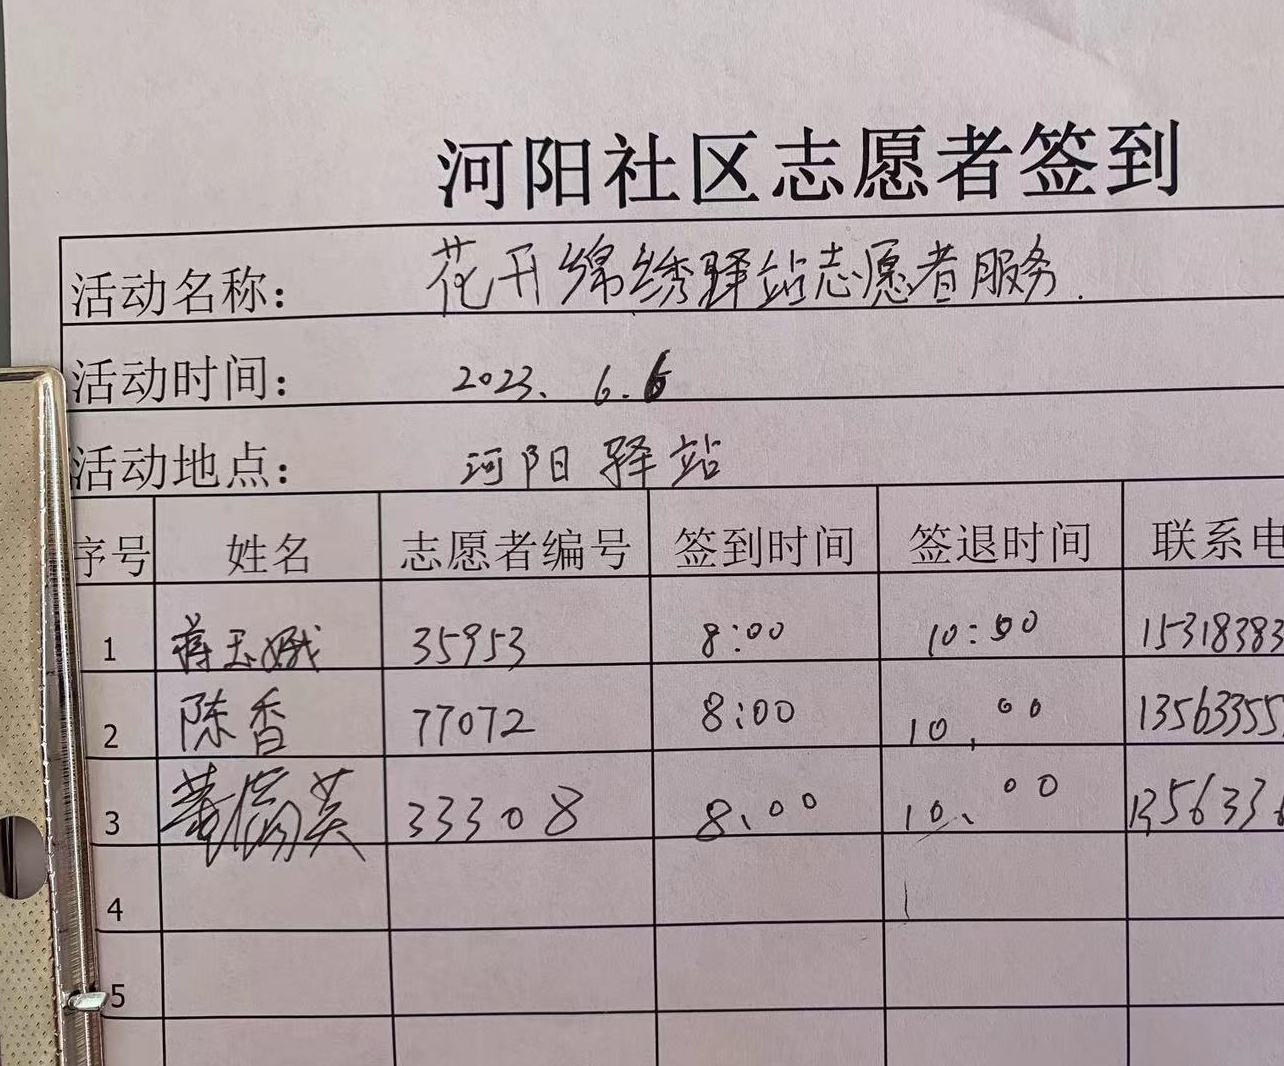 河阳社区志愿者签到
活动名称: 花开绵绣驿站志愿者服务.
活动时间: 2023、6.6
活动地点: 河阳驿站
序号 姓名 志愿者编号 签到时间 签退时间 联系电
1 蒋玉娥 35953 8:00 10:00 15318383
2 陈香 77072 8:00 10.00 13563355
3 33308 8、00 10、00 1356336
4
5